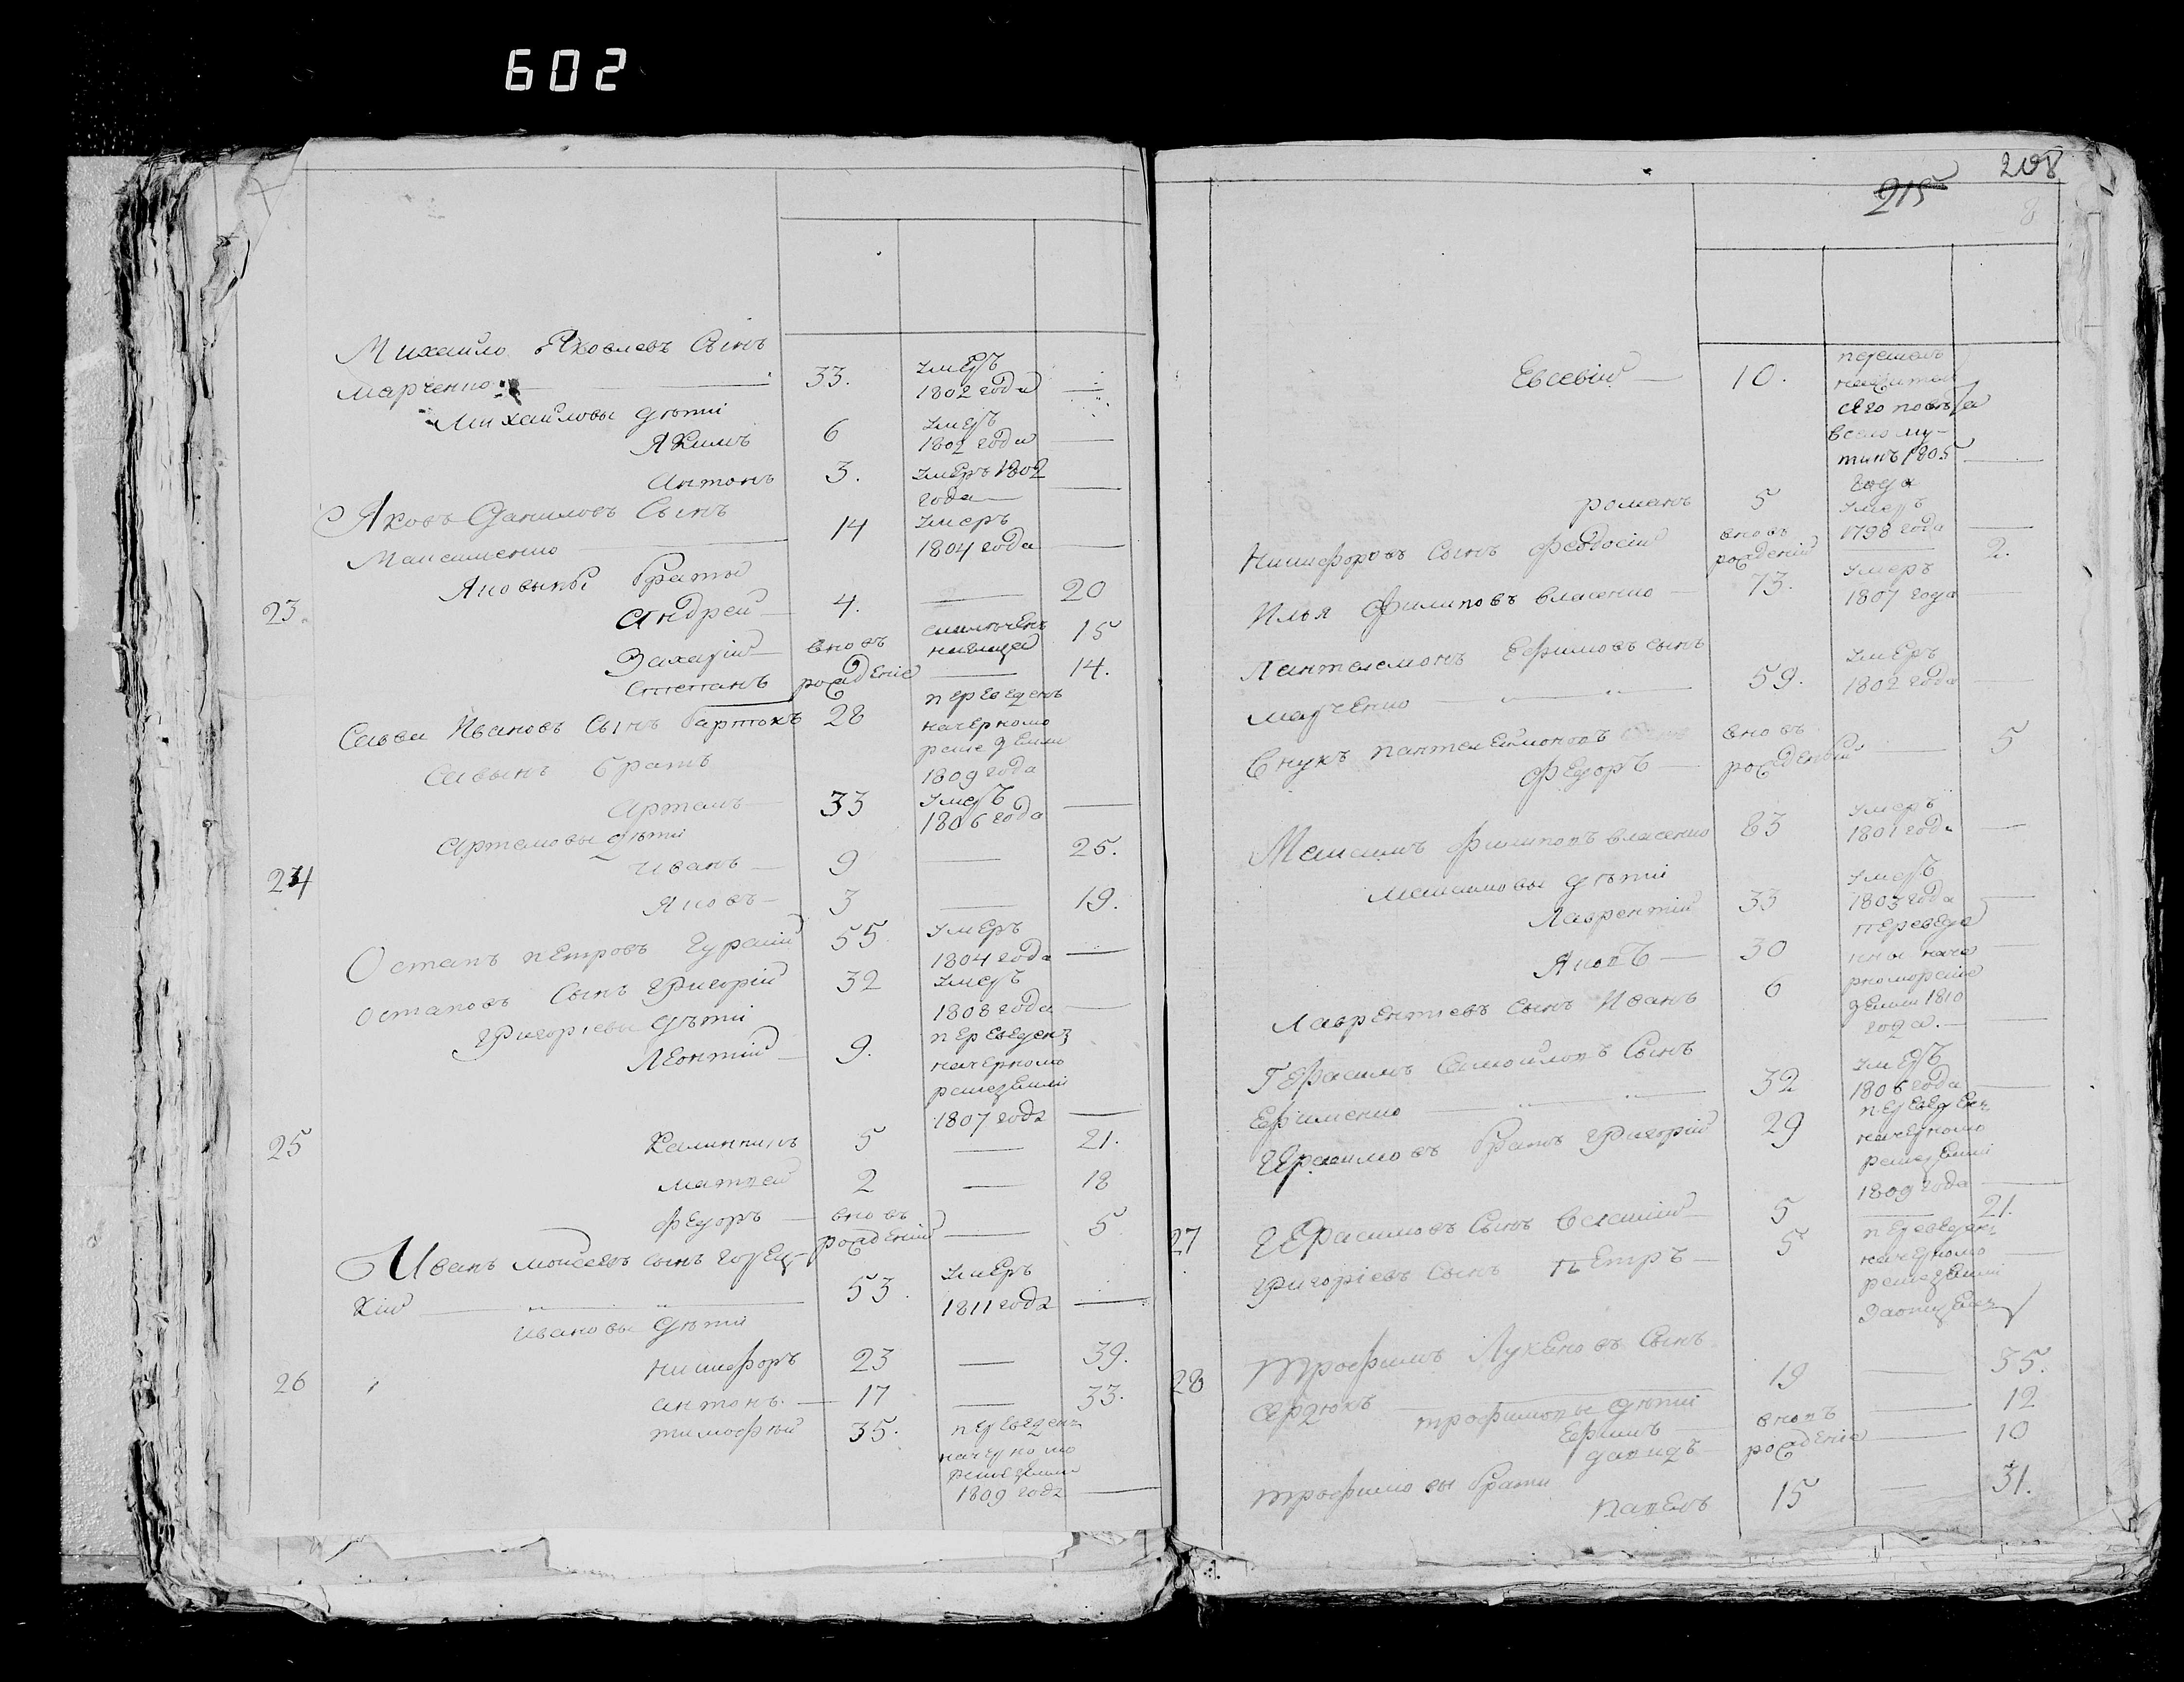 602
Михайло Яковлевъ Сынъ
Марченко 33. умеръ 1802 года —
Михайловы дѣти
Якимъ 6 умеръ 1802 года —
Антонъ 3. умеръ 1802 года —
Яковъ Даниловъ Сынъ
Максименко 14 умеръ 1804 года —
Яковыхъ браты
23. Андрей 4. — 20
Захарій вновь 15
Степанъ рожденіе — 14.
Савва Ивановъ Сынъ 28 переведенъ
начерномо
рские земли
1809 года
Савынъ братъ
Артемъ 33 умеръ 1806 года —
Артемовы дѣти
24 Иванъ 9 — 25.
Яковъ 3 — 19.
Остапъ Петровъ 55 умеръ 1804 года —
Остаповъ Сынъ Григорій 32 умеръ 1808 года —
Григоріевы дѣти
Леонтій 9. переведенъ
начерномо
рские земли
1807 года —
25 5 — 21.
Матвей 2 — 18
Федоръ вновь рожденій — 5
Иванъ Моисеевъ сынъ Горец-
кій 53. умеръ 1811 года —
Ивановы дѣти
26 Никифоръ 23 — 39.
Антонъ. 17 — 33.
Тимофѣй 35. переведенъ
начерномо
рские земли
1809 года —
208
215
8
Евсевій 10.
1805 —
года
романъ 5 умеръ 1798 года —
Никифоровъ Сынъ Феодосій вновь рожденій — 2.
Илья Филиповъ Власенко 73. умеръ 1807 года —
Пантелемонъ Ефимовъ сынъ
Марченко 59. умеръ 1802 года —
Внукъ Пантелеймоновъ вновь
Федоръ рожденный — 5
Максимъ Филиповъ Власенко 83 умеръ 1801 года —
Максимовы дѣти
Лаврентій 33 умеръ 1805 года —
Яковъ 30 переведе
ны наче
Лаврентіевъ сынъ Иванъ 6 рноморские
земли 1810
года. —
Герасимъ Самойловъ Сынъ
Ефименко 32 умеръ 1806 года —
Герасимовъ братъ Григорій 29 переведенъ
начерномо
рские земли
1809 года —
27 Герасимовъ Сынъ Василій 5 — 21.
Григоріевъ Сынъ Петръ 5 переведенъ
начерномо
рские земли
28 Трофимъ Лукяновъ Сынъ
Сердюкъ 19 — 35.
Трофимовы дѣти
Ефимъ вновь — 12
Давидъ рожденіе — 10
Трофимовы брати
Павелъ 15 — 31.